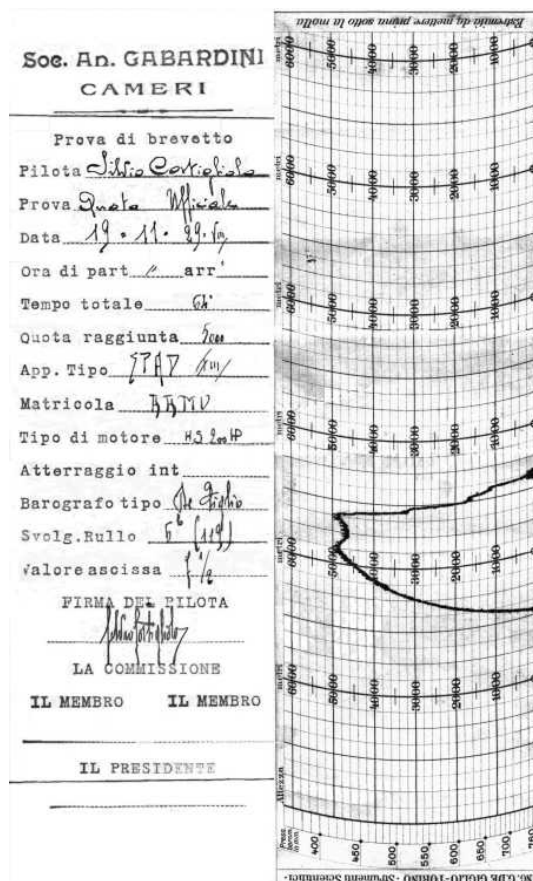 Soc. An. GABARDINI
CAMERI
Prova di brevetto
Pilota Silvio Costigliolo
Prova Quota Ufficiale
Data 19.11.29.VIII
Ora di part " arr'
Tempo totale 64'
Quota raggiunta 5000
App. Tipo SPAD XIII
Matricola AAMV
Tipo di motore H.S 200 HP
Atterraggio int
Barografo tipo De Giglio
Svolg. Rullo
Valore ascissa 1/2
FIRMA DEL PILOTA
LA COMMISSIONE
IL MEMBRO IL MEMBRO
IL PRESIDENTE
Estremità da mettere prima sotto la molla
metri 6000 5000 4000 3000 2000 1000 0
metri 6000 5000 4000 3000 2000 1000 0
metri 6000 5000 4000 3000 2000 1000 0
metri 6000 5000 4000 3000 2000 1000 0
metri 6000 5000 4000 3000 2000 1000 0
metri 6000 5000 4000 3000 2000 1000 0
Altezza
Press. barom. in mm. 400 450 500 550 600 650 700 760
NG. G. DE GIGLIO - TORINO - Strumenti Scientifici -